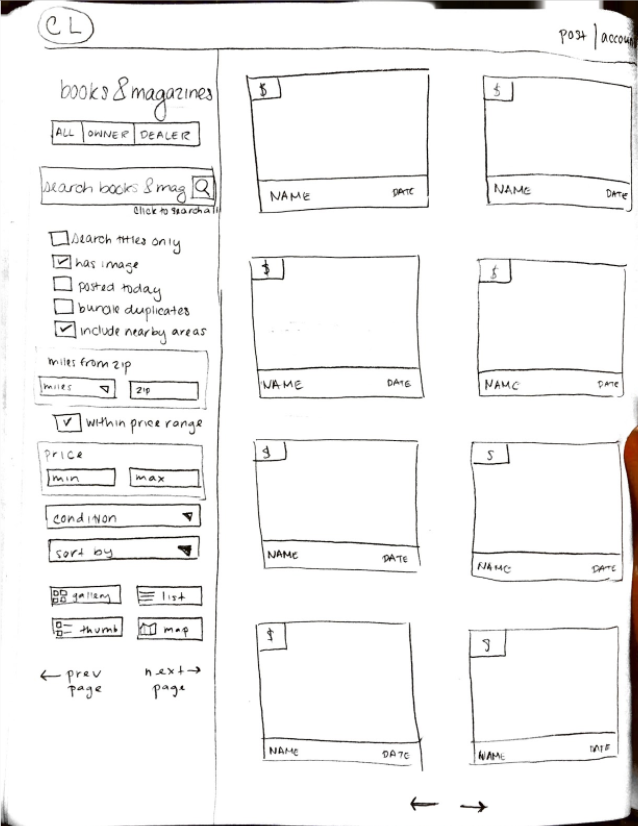 CL
post | accou
books & magazines
ALL OWNER DEALER
search books & mag
click to search al
search titles only
has image
posted today
bundle duplicates
include nearby areas
miles from zip
miles zip
within price range
price
min max
condition
sort by
gallery list
thumb map
← prev page
next → page
$ $
NAME DATE NAME DATE
$ $
NAME DATE NAME DATE
$ $
NAME DATE NAME DATE
$ $
NAME DATE NAME DATE
← →